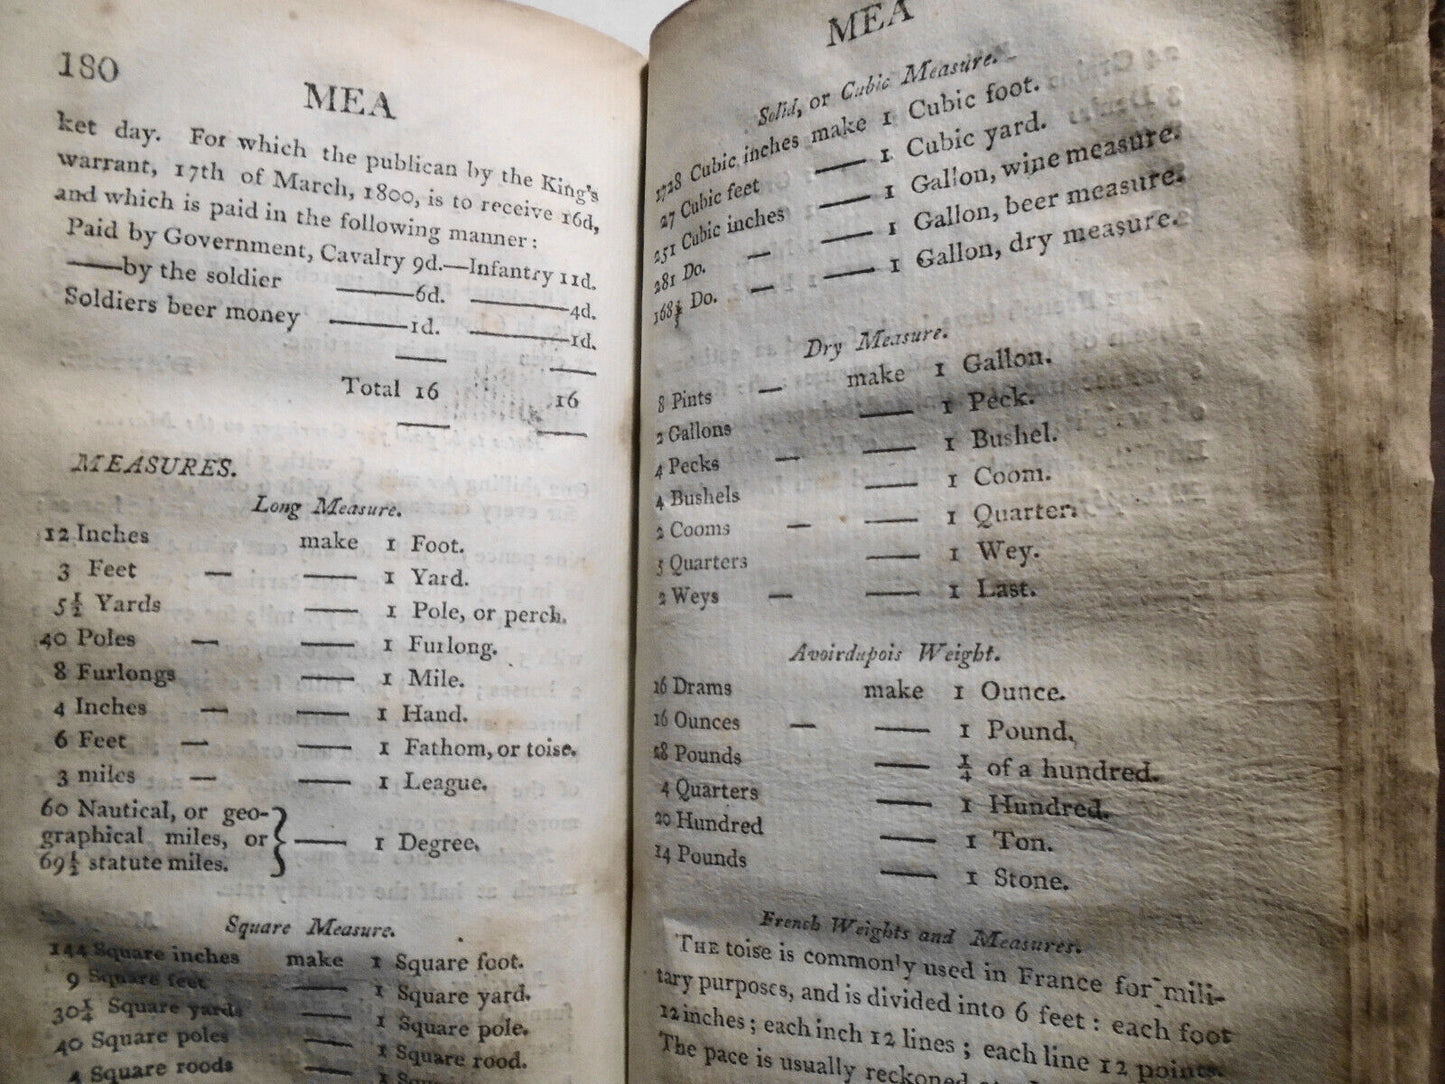 180
MEA
ket day. For which the publican by the King's
warrant, 17th of March, 1800, is to receive 16d,
and which is paid in the following manner:
Paid by Government, Cavalry 9d.—Infantry 11d.
——by the soldier ——6d. ——4d.
Soldiers beer money ——1d. ——1d.
Total 16 16
MEASURES.
Long Measure.
12 Inches make 1 Foot.
3 Feet — —— 1 Yard.
5½ Yards —— 1 Pole, or perch.
40 Poles — —— 1 Furlong.
8 Furlongs —— 1 Mile.
4 Inches — —— 1 Hand.
6 Feet — —— 1 Fathom, or toise.
3 miles — —— 1 League.
60 Nautical, or geo-
graphical miles, or —— 1 Degree.
69½ statute miles.
Square Measure.
144 Square inches make 1 Square foot.
9 Square feet —— 1 Square yard.
30¼ Square yards —— 1 Square pole.
40 Square poles —— 1 Square rood.
4 Square roods
MEA
Solid, or Cubic Measure.
1728 Cubic inches make 1 Cubic foot.
27 Cubic feet —— 1 Cubic yard.
251 Cubic inches —— 1 Gallon, wine measure.
281 Do. — —— 1 Gallon, beer measure.
168⅗ Do. — —— 1 Gallon, dry measure.
Dry Measure.
8 Pints — make 1 Gallon.
2 Gallons —— 1 Peck.
4 Pecks — —— 1 Bushel.
4 Bushels —— 1 Coom.
2 Cooms — —— 1 Quarter.
5 Quarters —— 1 Wey.
2 Weys — —— 1 Last.
Avoirdupois Weight.
16 Drams make 1 Ounce.
16 Ounces — —— 1 Pound.
28 Pounds —— ¼ of a hundred.
4 Quarters —— 1 Hundred.
20 Hundred —— 1 Ton.
14 Pounds —— 1 Stone.
French Weights and Measures.
THE toise is commonly used in France for mili-
tary purposes, and is divided into 6 feet: each foot
12 inches; each inch 12 lines; each line 12 points.
The pace is usually reckoned